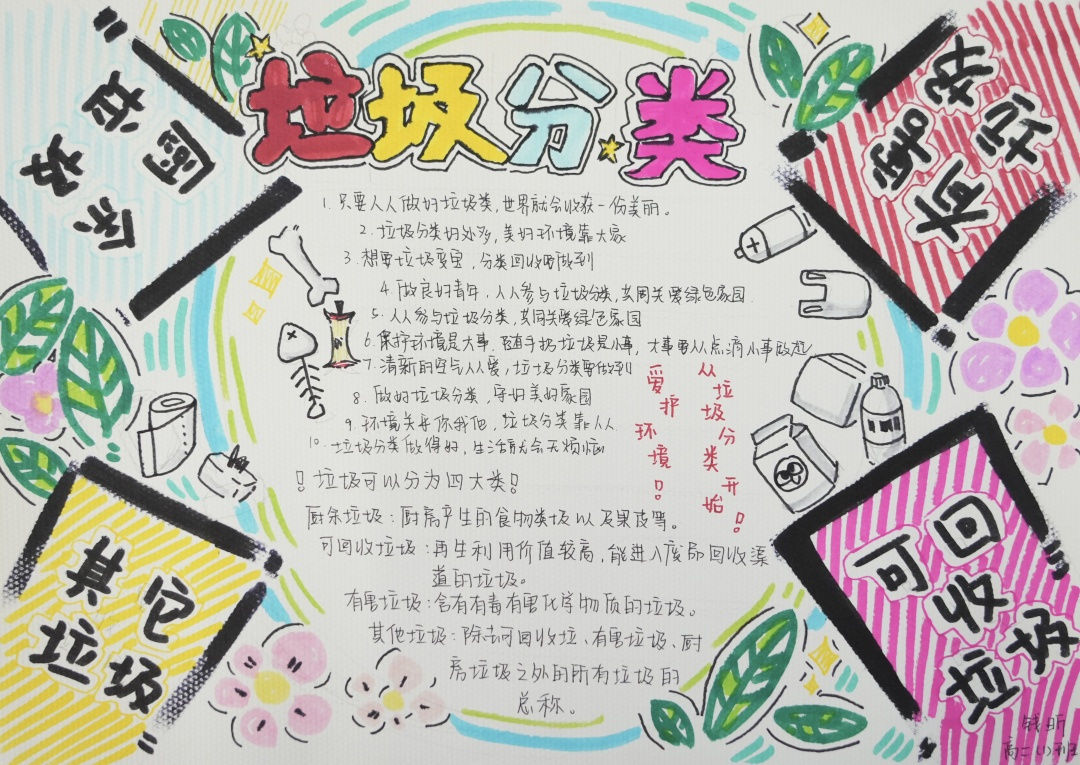 垃圾分类
厨余垃圾
有害垃圾
1. 只要人人做好垃圾类,世界就会收获一份美丽。
2. 垃圾分类好处多,美好环境靠大家
3. 想要垃圾变宝,分类回收要做到
4. 做良好青年,人人参与垃圾分类,共同关爱绿色家园.
5. 人人参与垃圾分类,共同关爱绿色家园
6. 保护环境是大事.随手扔垃圾是小事,大事要从点滴小事做起
7. 清新的空气人人爱,垃圾分类要做到
8. 做好垃圾分类,守好美好家园
9 环境关乎你我他,垃圾分类靠人人
10. 垃圾分类做得好,生活就会无烦恼
爱护环境!
从垃圾分类开始!
!垃圾可以分为四大类!
厨余垃圾:厨房产生的食物类圾以及果皮等。
可回收垃圾:再生利用价值较高,能进入废品回收渠
道的垃圾。
有害垃圾:含有有毒有害化学物质的垃圾。
其他垃圾:除去可回收垃、有害垃圾、厨
房垃圾之外的所有垃圾的
总称。
其它垃圾
可回收垃圾
钱昕
高二(1)班